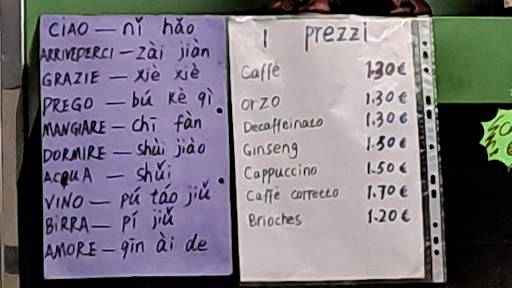 CIAO — nǐ hǎo
ARRIVEDERCI — zài jiàn
GRAZIE — xiè xiè
PREGO — bú kè qì
MANGIARE — chī fàn
DORMIRE — shùi jiào
ACQUA — shǔi
VINO — pú táo jiǔ
BIRRA — pí jiǔ
AMORE — qīn ài de
I prezzi
Caffè 1.30 €
orzo 1.30 €
Decaffeinato 1.30 €
Ginseng 1.50 €
Cappuccino 1.50 €
Caffè corretto 1.70 €
Brioches 1.20 €